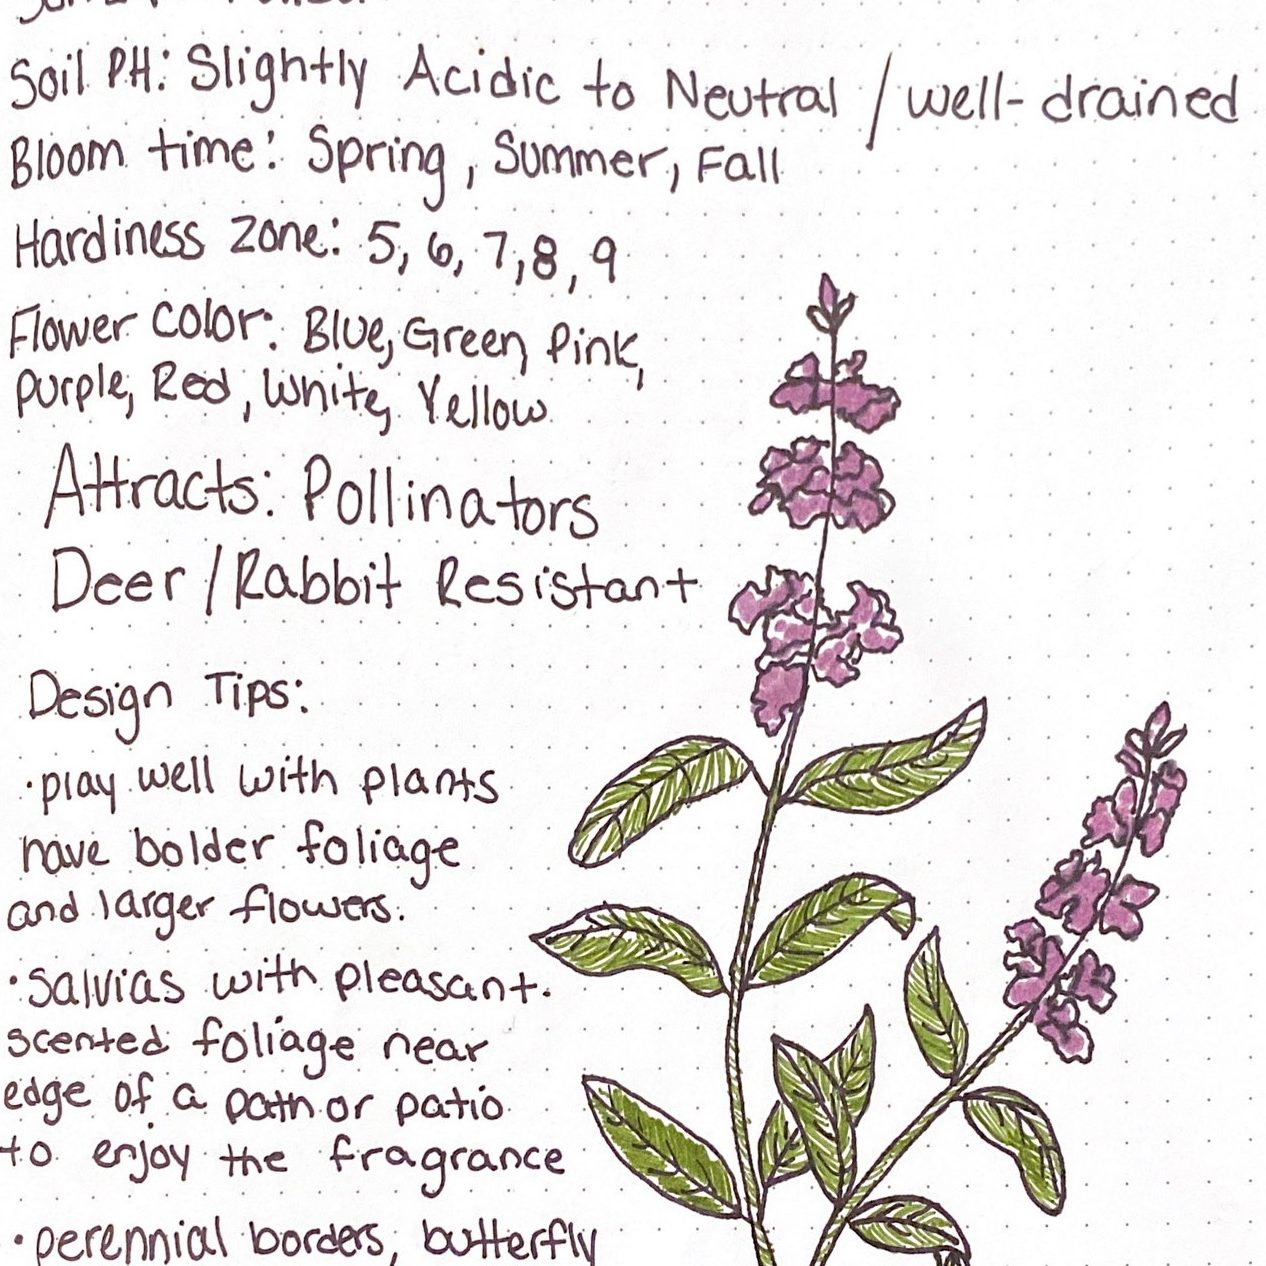 Soil PH: Slightly Acidic to Neutral / well-drained
Bloom time: Spring, Summer, Fall
Hardiness Zone: 5, 6, 7, 8, 9
Flower Color: Blue, Green, Pink,
Purple, Red, White, Yellow
Attracts: Pollinators
Deer / Rabbit Resistant
Design Tips:
• play well with plants
have bolder foliage
and larger flowers.
• Salvias with pleasant.
scented foliage near
edge of a path or patio
to enjoy the fragrance
• perennial borders, butterfly